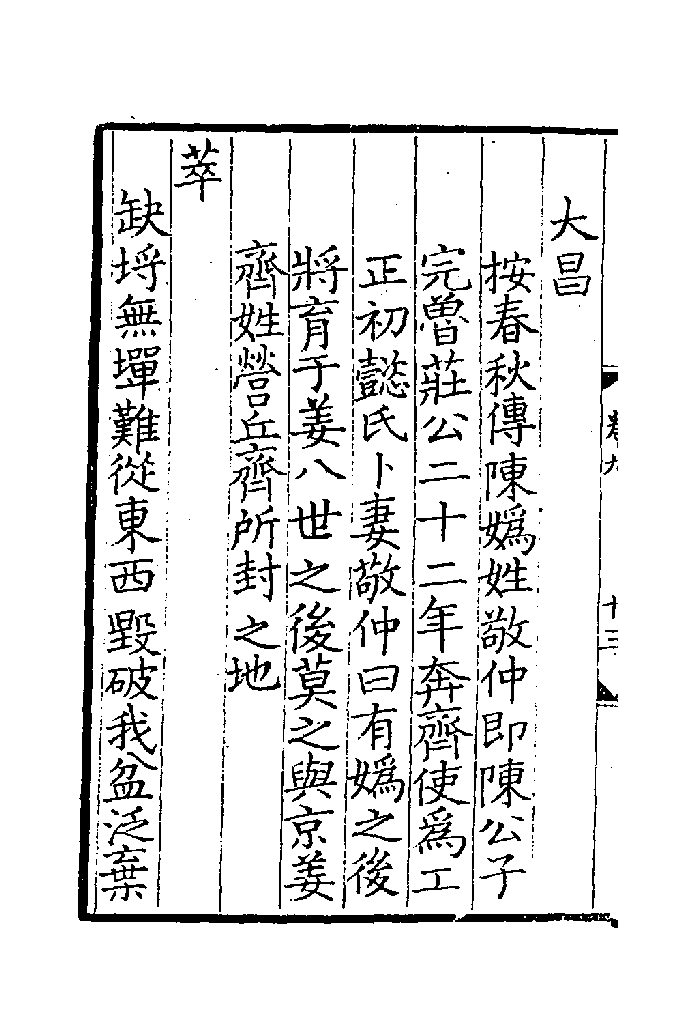 卷九
十三
大昌
按春秋傳陳嬀姓敬仲即陳公子
完魯莊公二十二年奔齊使爲工
正初懿氏卜妻敬仲曰有嬀之後
將育于姜八世之後莫之與京姜
齊姓營丘齊所封之地
萃
缺埒無墠難從東西毀破我盆泛棄